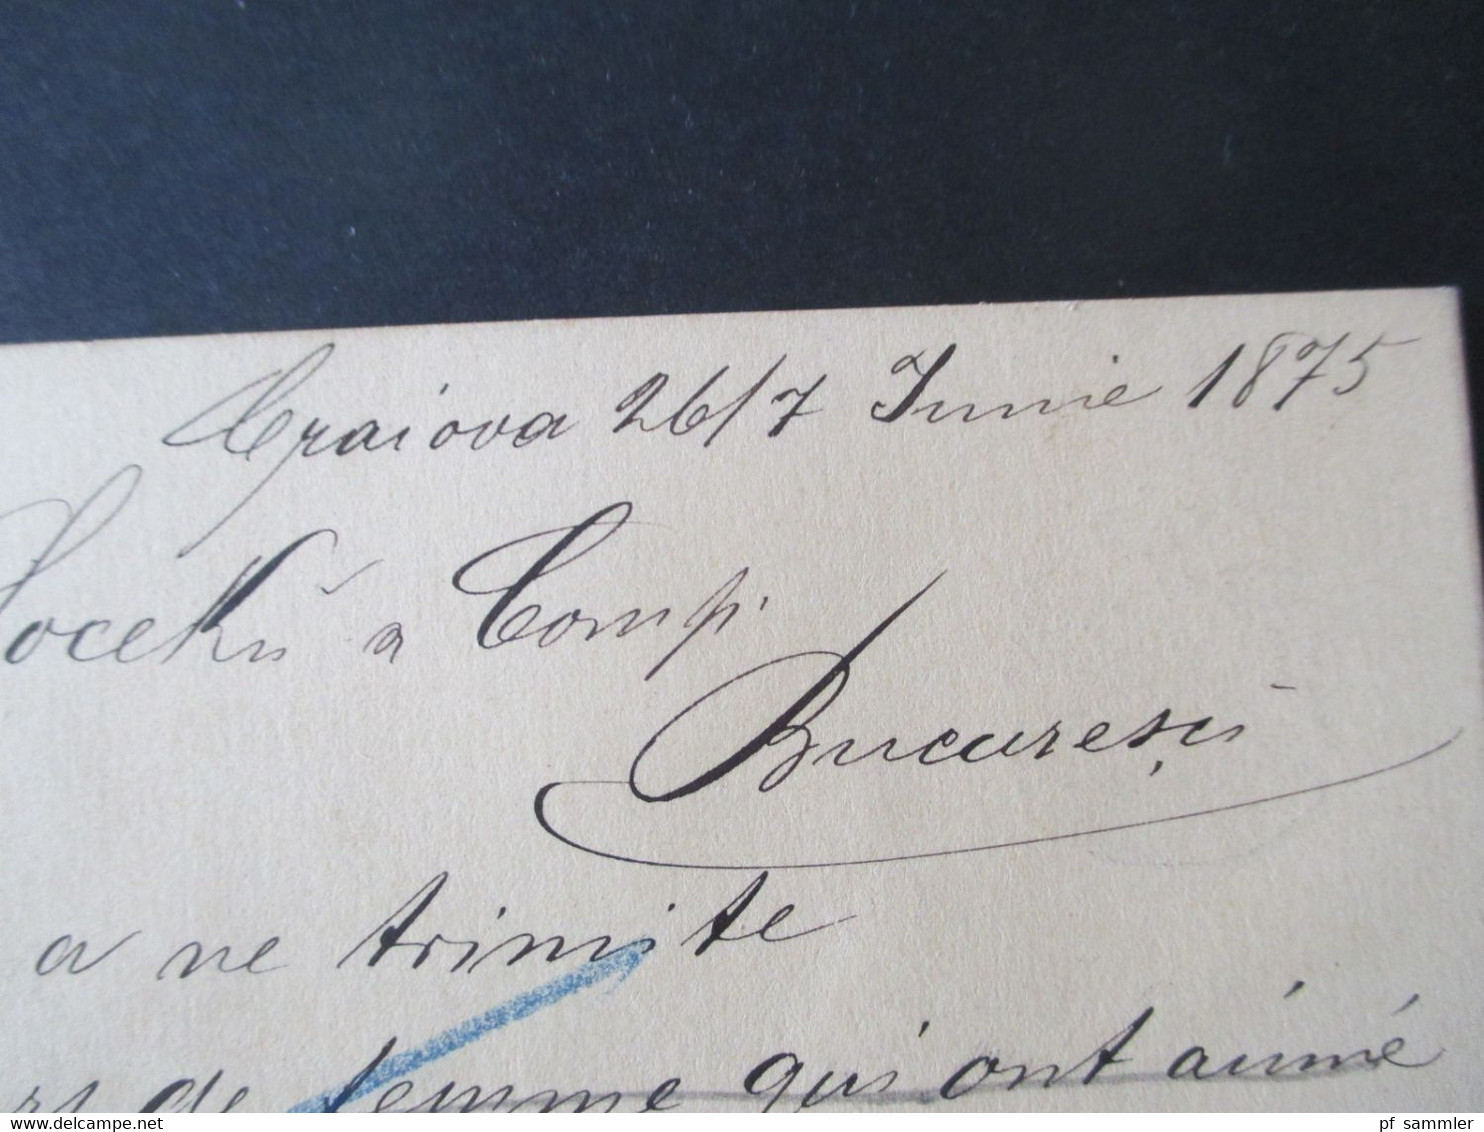 Craiova 26/7 Iunie 1875
Soceků & Comp.
Bucuresci
a ne trimite
de femme qui ont aimé
www.delcampe.net
pf_sammler